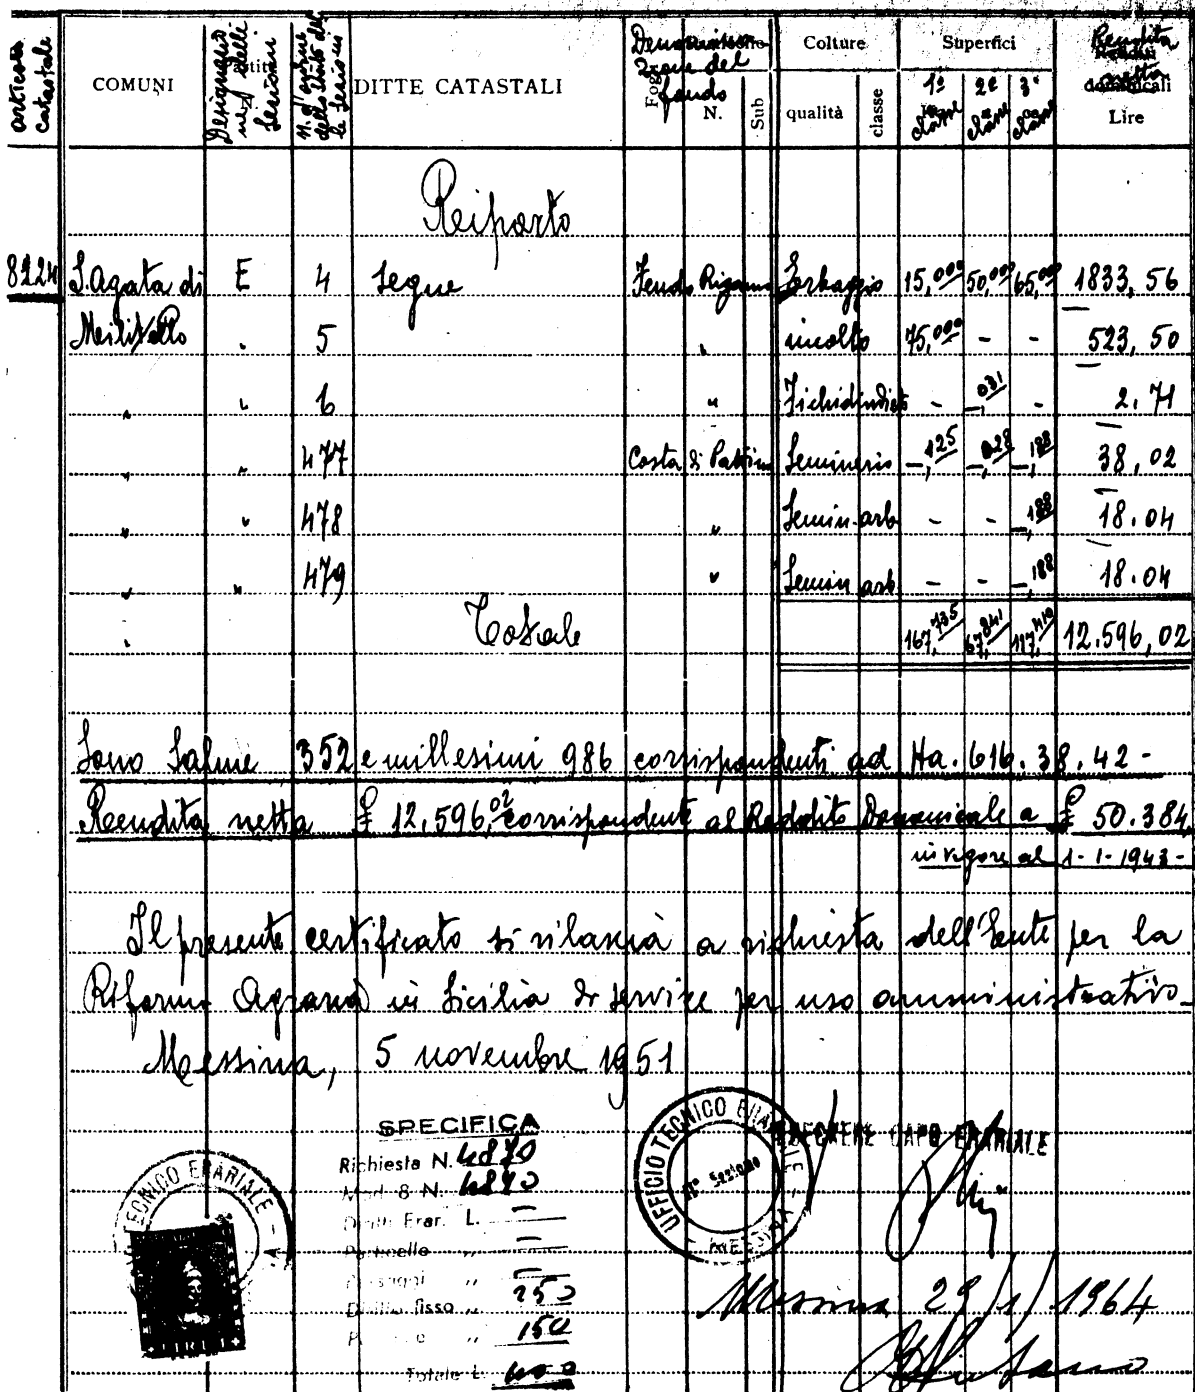 articolo catastale COMUNI Designazio ne delle Sezioni N. d'ordine dello Stato del le Sezioni DITTE CATASTALI Denominazione del fondo N. Sub Colture qualità classe Superfici 1ª classe 2ª classe 3ª classe Rendita netta dominicali Lire
Reiporto
8224 S. Agata di E 4 Segue Feudo Erbaggio 15,000 50,000 65,000 1833,56
Militello " 5 " incolto 75,000 - - 523,50
" " 6 " Fichidindieto - -,031 - 2.71
" " 477 Costa di Seminerio -,125 -,028 -,188 38,02
" " 478 " Semin. arb - - -,188 18.04
" " 479 " Semin arb - - -,188 18.04
" Totale 167,735 67,841 117,410 12.596,02
Sono Salme 352 e millesimi 986 corrispondenti ad Ha. 616.38.42-
Rendita netta £ 12.596,02 corrispondente al Reddito Domenicale a £ 50.384
in vigore al 1-1-1943-
Il presente certificato si rilascia a richiesta dell'Ente per la
Riforma Agraria in Sicilia di servire per uso amministrativo-
Messina, 5 novembre 1951
SPECIFICA
Richiesta N. 4870
Mod. 8 N. 4890
Diritti Erar. L. —
Particelle „ —
„ —
Diritto fisso „ 250
„ 150
Totale L. 400
TECNICO ERARIALE
UFFICIO TECNICO ERARIALE - MESSINA
Sezione
CAPO ERARIALE
Messina 29/1/1964